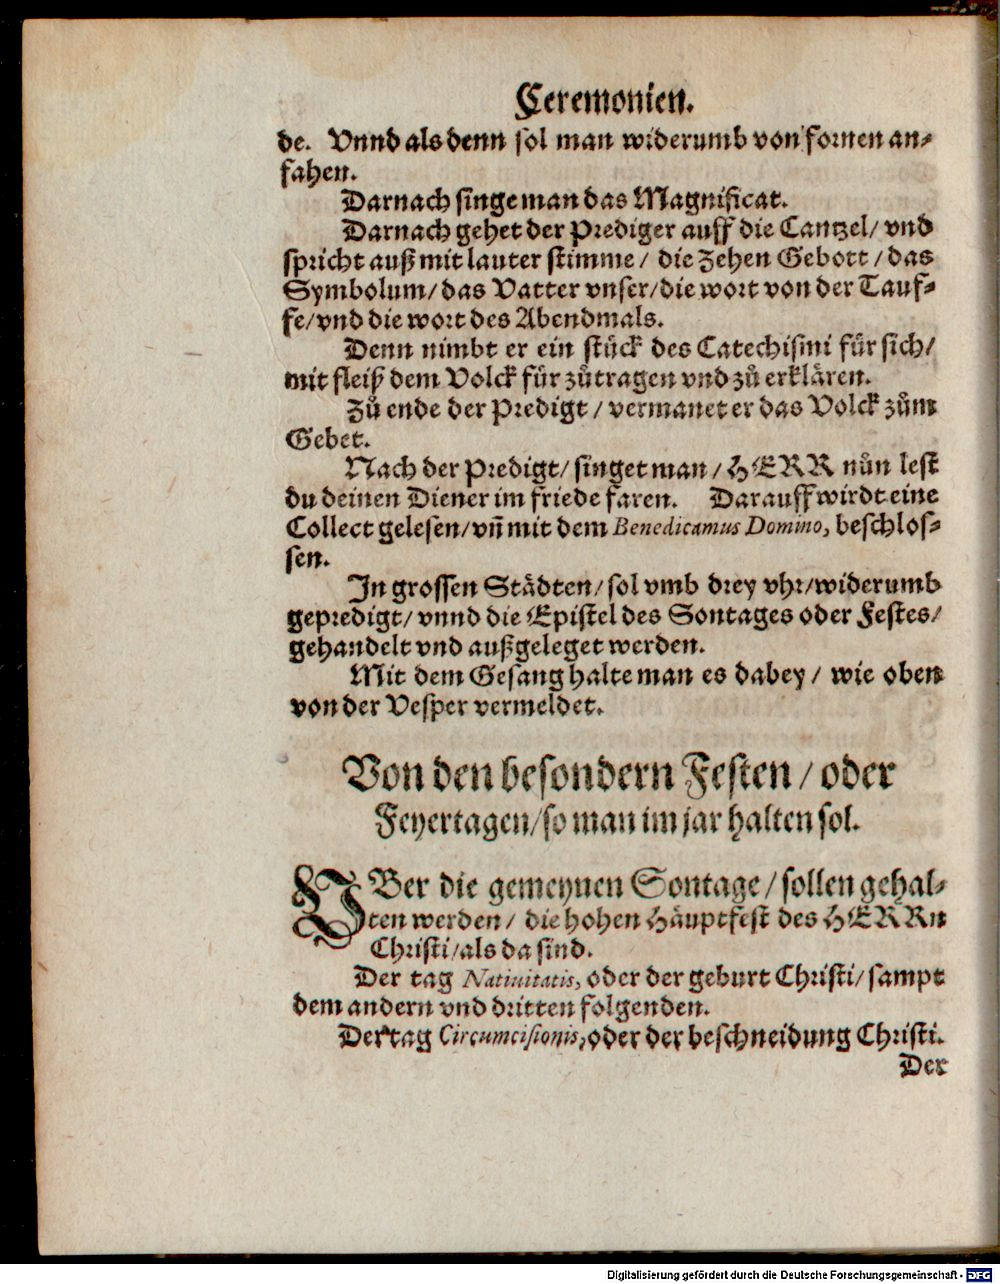 Ceremonien.
de. Vnnd als denn sol man widerumb von fornen an-
fahen.
Darnach singe man das Magnificat.
Darnach gehet der Prediger auff die Cantzel/ vnd
spricht auß mit lauter stimme/ die Zehen Gebott/ das
Symbolum/ das Vatter vnser/ die wort von der Tauf-
fe/ vnd die wort des Abendmals.
Denn nimbt er ein stück des Catechismi für sich/
mit fleiß dem Volck für zůtragen vnd zů erklären.
Zů ende der Predigt/ vermanet er das Volck zům
Gebet.
Nach der Predigt/ singet man/ HERR nůn lest
du deinen Diener im friede faren. Darauff wirdt eine
Collect gelesen/ vñ mit dem Benedicamus Domino, beschlos-
sen.
In grossen Städten/ sol vmb drey vhr/ widerumb
gepredigt/ vnnd die Epistel des Sontages oder Festes/
gehandelt vnd außgeleget werden.
Mit dem Gesang halte man es dabey/ wie oben
von der Vesper vermeldet.
Von den besondern Festen/ oder
Feyertagen/ so man im jar halten sol.
VBer die gemeynen Sontage/ sollen gehal-
ten werden/ die hohen Häuptfest des HERRn
Christi/ als da sind.
Der tag Natiuitatis, oder der geburt Christi/ sampt
dem andern vnd dritten folgenden.
Der tag Circumcisionis, oder der beschneidung Christi.
Der
Digitalisierung gefördert durch die Deutsche Forschungsgemeinschaft - DFG